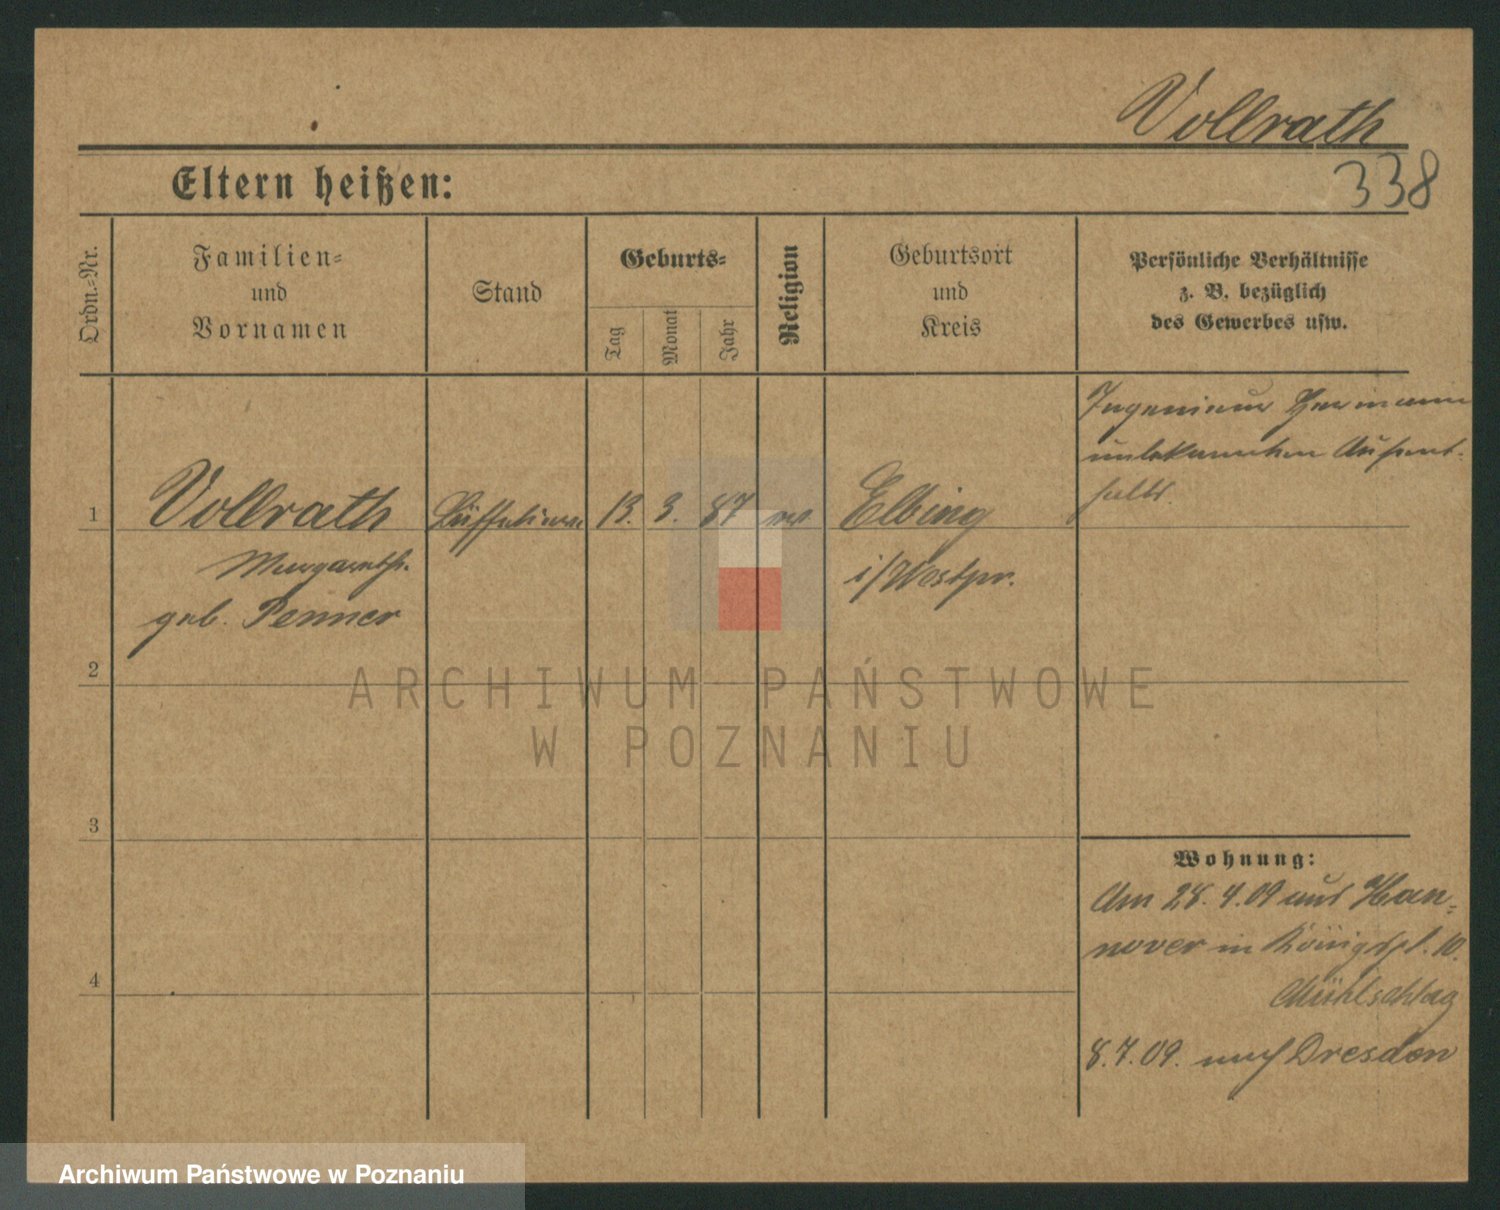 Vollrath
338
Eltern heißen:
Ordn.-Nr.
Familien-
und
Vornamen
Stand
Geburts-
Tag
Monat
Jahr
Religion
Geburtsort
und
Kreis
Persönliche Verhältnisse
z. B. bezüglich
des Gewerbes usw.
Ingenieur Hermann
unbekannten Aufent-
halts.
1
Vollrath
13. 3. 87
Elbing
Margarethe
i/Westpr.
geb. Penner
2
3
4
Wohnung:
Am 28. 4. 09 aus Han-
nover in Königspl. 10.
Mühlschlag
8.7.09. nach Dresden
ARCHIWUM PAŃSTWOWE
W POZNANIU
Archiwum Państwowe w Poznaniu